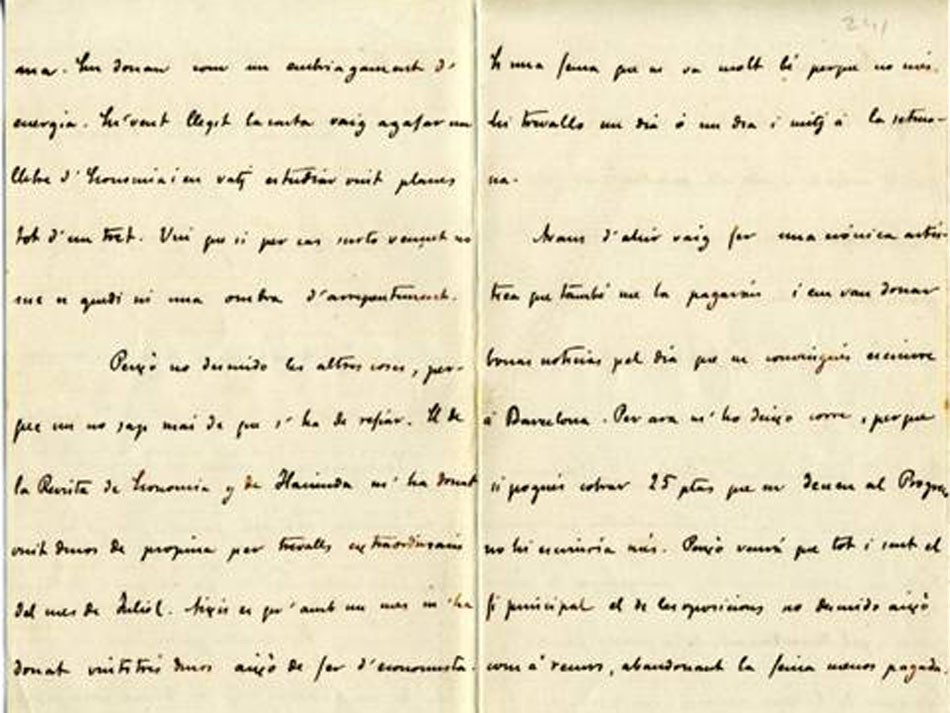 mar. Em donan com un embriagament d'
energia. Havent llegit la carta vaig agafar un
llibre d'Economia i en vatj estudiar vuit planes
tot d'un tret. Vui que si per cas surto vensut no
me'n quedi ni una ombra d'arrepentiment.
Peixò no descuido les altres coses, per-
que un no sap mai de que s'ha de refiar. El de
la Revista de Economia y de Hacienda m'ha donat
vuit duros de propina per travalls extraordinaris
del mes de Juliol. Aixís es qu'amb un mes m'ha
donat vintitrés duros aixó de fer d'economista.
241
Es una feina que'm va molt bé perque no més
hi travallo un dia ó un dia i mitj á la setma-
na.
Avans d'ahir vaig fer una crónica artís-
tica que també me la pagarán i em van donar
bonas noticias pel dia que'm convingués escriure
á Barcelona. Per ara m'ho deixo corre, perque
si pogués cobrar 25 ptas que'm deuen al Progrés
no hi escriuria més. Peixò veurá que tot i sent el
fi principal el de les oposicions no descuido aixó
com á recurs, abandonant la feina menos pagada.